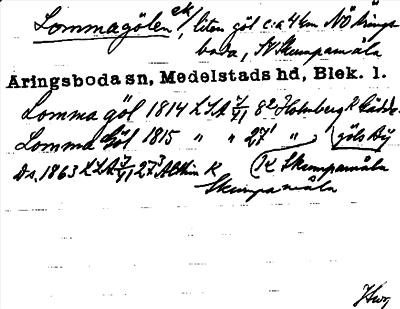 Lommagölen ek/, liten göl c:a 4 km NÖ Årings-
boda, SV Skumpamåla
Åringsboda sn, Medelstads hd, Blek. l.
Lomma göl 1814 LSA 8² Holmberg R
Lomma Göl 1815 " " 27¹ " göls Äg
Ds. 1863 LSA 27³ Althin R (R Skumpamåla
Skumpamåla